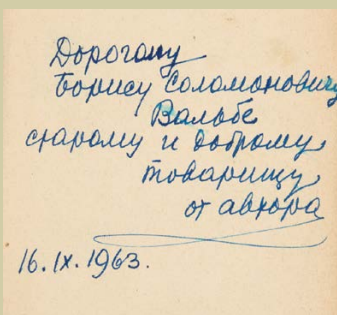 Дорогому
Борису Соломоновичу
Вальбе
старому и доброму
товарищу
от автора
16.IX.1963.